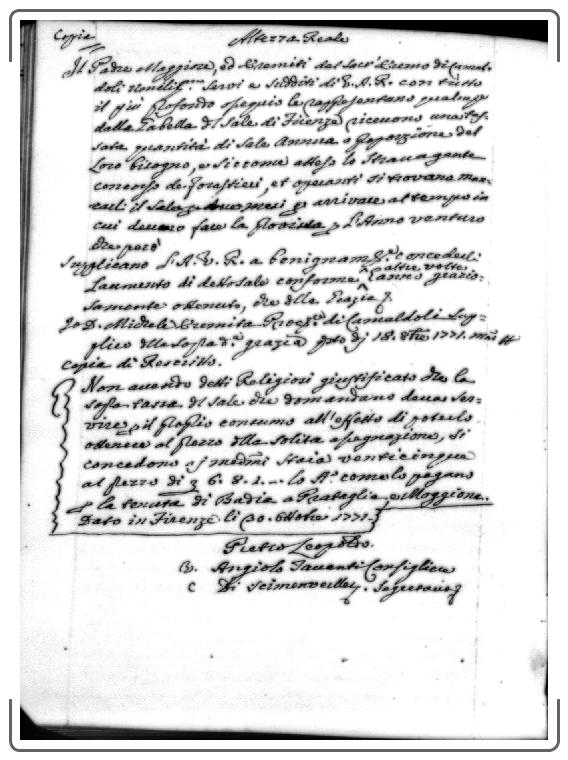 Copia
Altezza Reale
Il Padre Maggiore, ed Eremiti del Sacr' Eremo di Camal-
doli Umiliss.mi Servi e Sudditi di V. A. R. con tutto
il più profondo ossequio le rappresentano qualm.e
dalla Tabella del Sale di Firenze ricevono una tas-
sata quantità di Sale Annua a proporzione del
Loro bisogno, e siccome atteso lo stravagante
concorso de forastieri, et operanti si trovano man-
carli il Sale due mesi p arrivare al tempo in
cui devono fare la provista p L'Anno venturo
che però
Supplicano L'A. V. R. a benignam.e concederli
altre volte
L'aumento di detto Sale conforme anno grazio-
samente ottenuto, che della Grazia
Io D. Michele Eremita Proc.re di Camaldoli Sup-
plico della Sopra d.a grazia q.to dì 18. 8bre 1771. mo pp.a
Copia di Rescritto.
Non avendo detti Religiosi giustificato che la
sop.a tassa del sale che domandano deva ser-
vire p il proprio consumo all'effetto di poterlo
ottenere al prezzo della solita assegnazione, si
concedono a i med.mi Staia venticinque
al prezzo di 3 6. 8. 1. lo St.o come lo pagano
p la tenuta di Badia a Prataglia, e Moggiona.
Dato in Firenze li 30. Ottobre 1771.
Pietro Leopoldo.
V. Angiolo Tavanti Consigliere
C Di Seimenweiller. Segretario